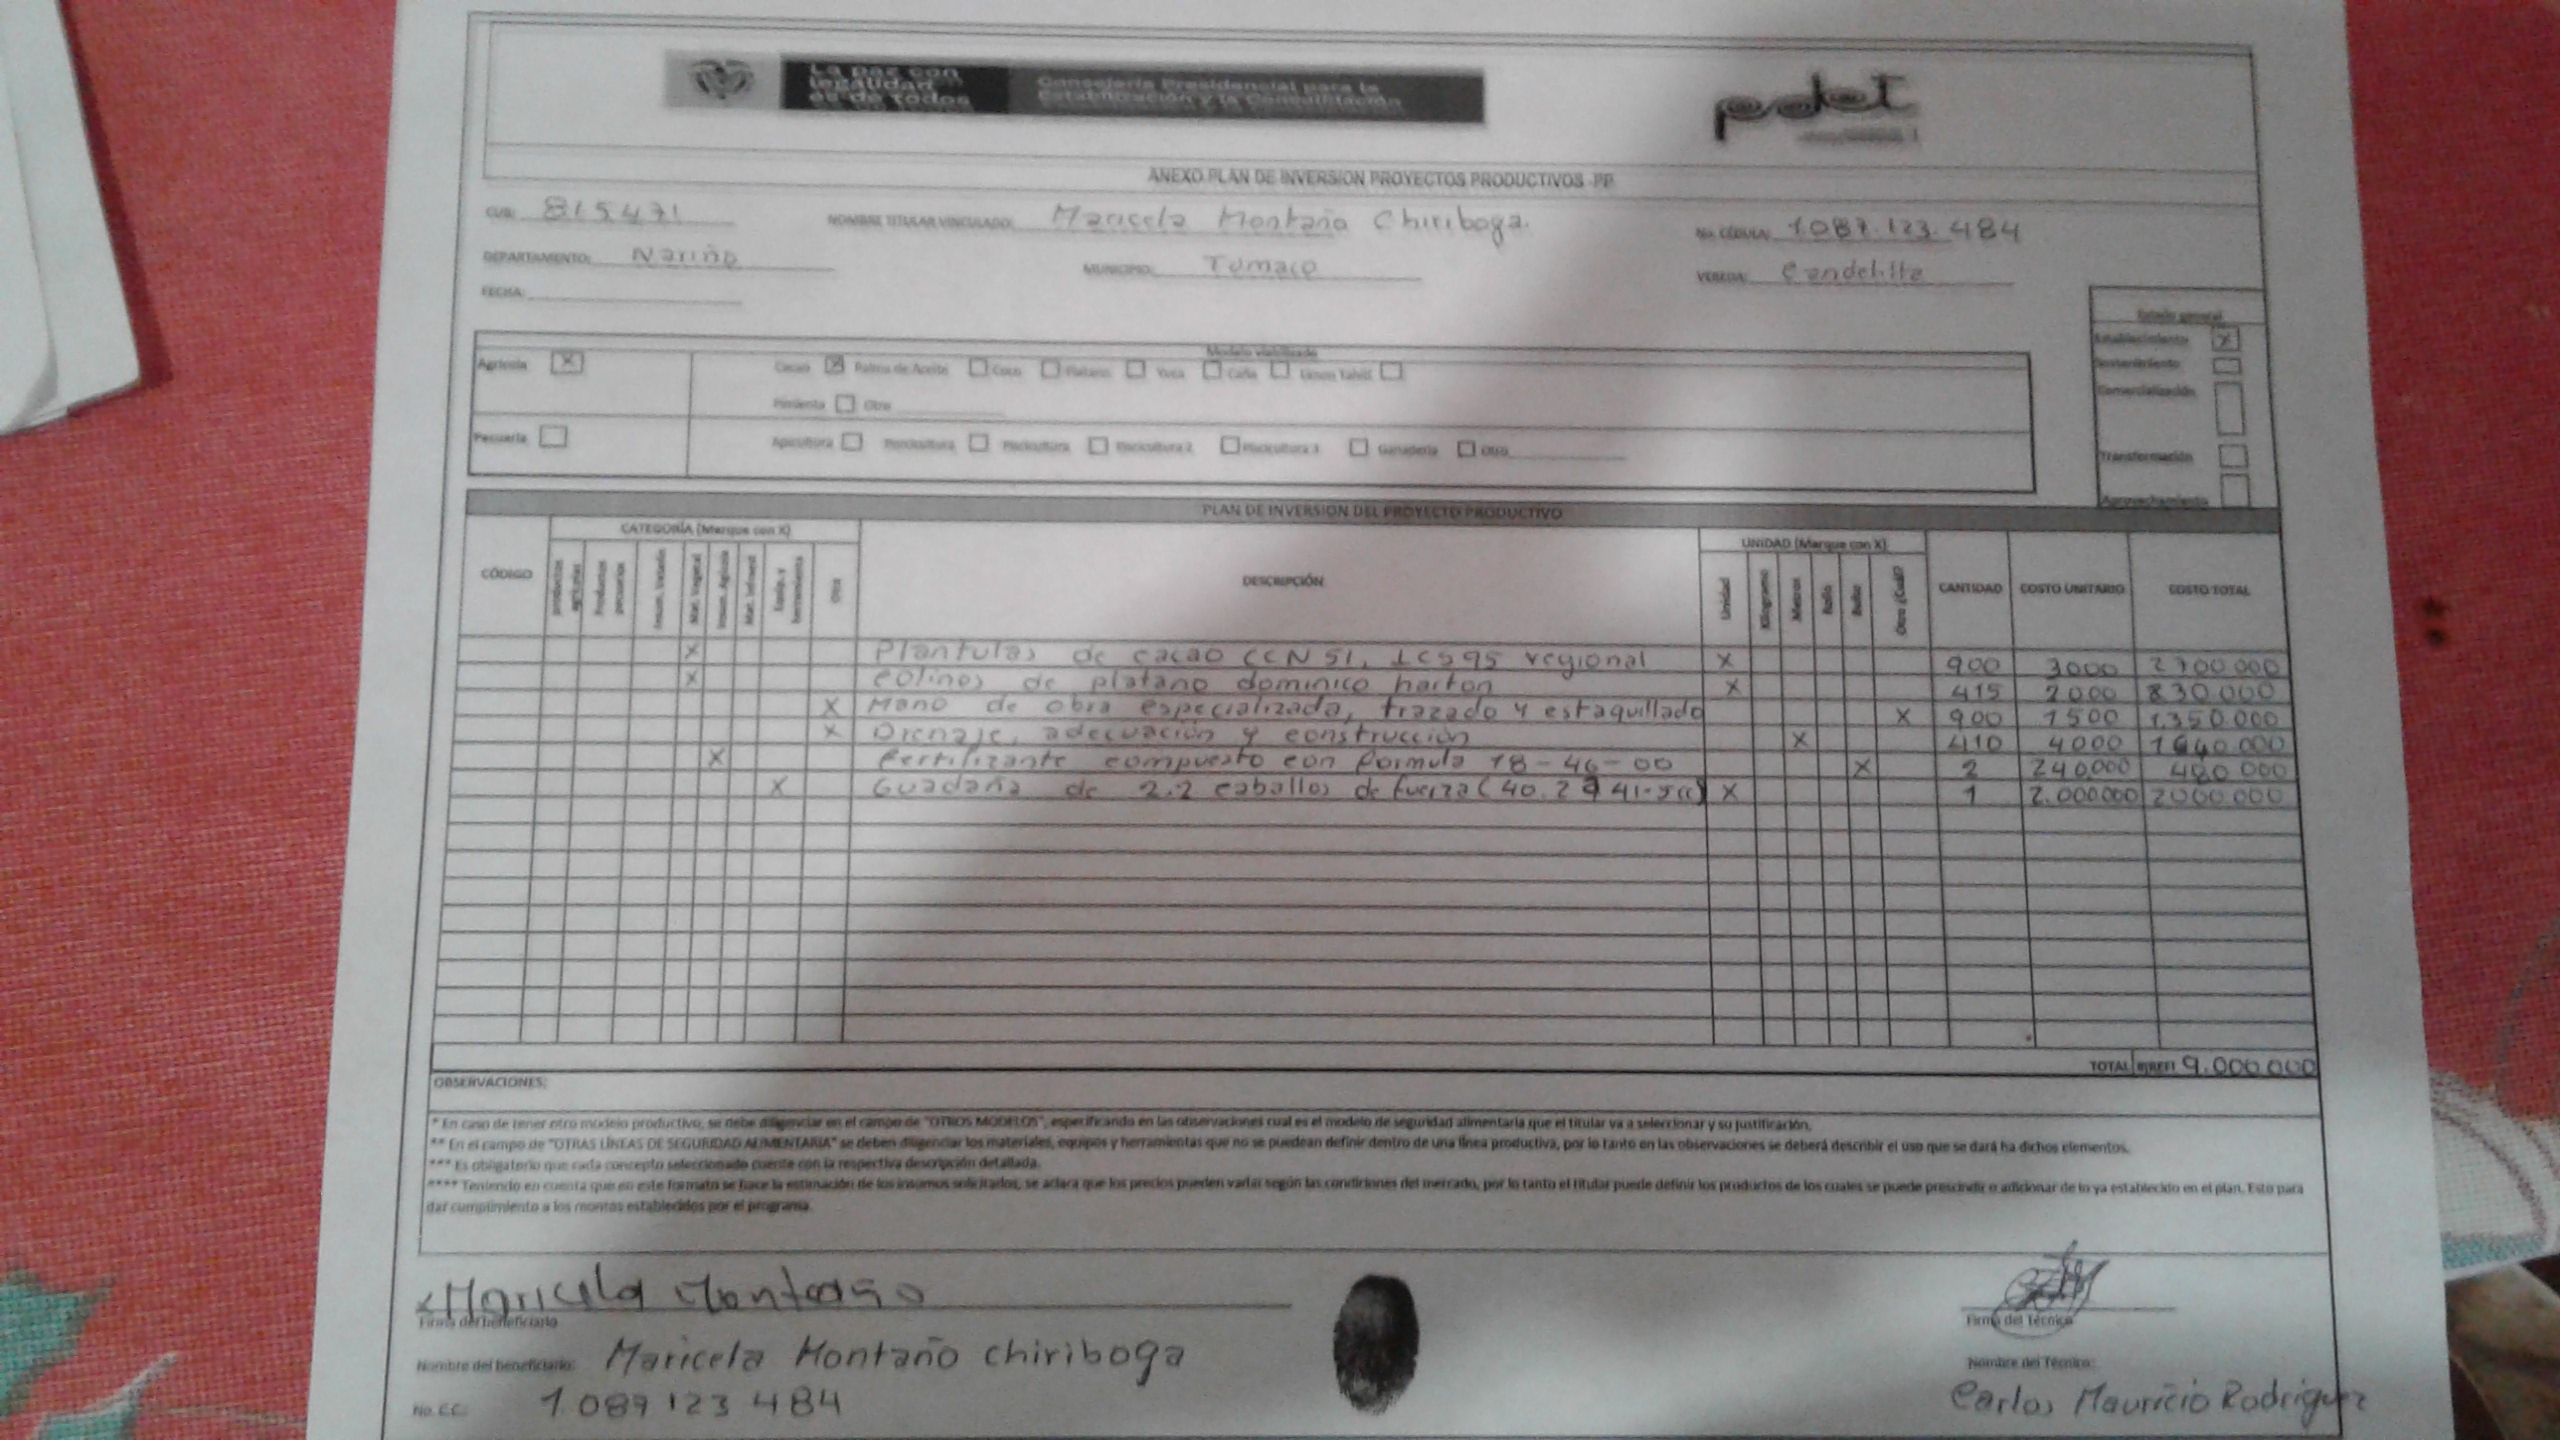 La paz con
legalidad
es de todos
Consejería Presidencial para la
Estabilización y la Consolidación
pdet
ANEXO PLAN DE INVERSION PROYECTOS PRODUCTIVOS -PP
CUB: 815471 NOMBRE TITULAR VINCULADO: Maricela Montaño Chiriboga. No. CÉDULA: 1.087.123.484
DEPARTAMENTO: Nariño MUNICIPIO: Tumaco VEREDA: Candelilla
FECHA:
Estado general
Establecimiento X
Sostenimiento
Comercialización
Transformación
Aprovechamiento
Modelo viabilizado
Agrícola X Cacao X Palma de Aceite Coco Platano Yuca Caña Limon Tahití
Pimienta Otro
Pecuaria Apicultura Porcicultura Piscicultura Piscicultura 2 Piscicultura 3 Ganadería Otro
PLAN DE INVERSION DEL PROYECTO PRODUCTIVO
CÓDIGO CATEGORÍA (Marque con X) DESCRIPCIÓN UNIDAD (Marque con X) CANTIDAD COSTO UNITARIO COSTO TOTAL
productos agrícolas Productos pecuarios Insum. Vetario Mat. Vegetal Insum. Agrícola Mat. Infraest Equip. y herramienta Otra Unidad Kilogramo Metros Rollo Bulto Otro ¿Cuál?
X Plantulas de cacao CCN 51, ICS95 regional X 900 3000 2700.000
X Colinos de platano dominico harton X 415 2000 830.000
X Mano de obra especializada, trazado y estaquillado X 900 1500 1.350.000
X Drenaje, adecuación y construcción X 410 4000 1640.000
X Fertilizante compuesto con formula 18-46-00 X 2 240.000 480.000
X Guadaña de 2.2 caballos de fuerza (40.2 X 1 2.000.000 2000.000
TOTAL 9.000.000
OBSERVACIONES:
* En caso de tener otro modelo productivo, se debe diligenciar en el campo de "OTROS MODELOS", especificando en las observaciones cual es el modelo de seguridad alimentaria que el titular va a seleccionar y su justificación.
** En el campo de "OTRAS LÍNEAS DE SEGURIDAD ALIMENTARIA" se deben diligenciar los materiales, equipos y herramientas que no se puedean definir dentro de una línea productiva, por lo tanto en las observaciones se deberá describir el uso que se dará ha dichos elementos.
*** Es obligatorio que cada concepto seleccionado cuente con la respectiva descripción detallada.
**** Teniendo en cuenta que en este formato se hace la estimación de los insumos solicitados, se aclara que los precios pueden variar según las condiciones del mercado, por lo tanto el titular puede definir los productos de los cuales se puede prescindir o adicionar de lo ya establecido en el plan. Esto para
dar cumplimiento a los montos establecidos por el programa.
x Maricela Montaño
Firma del beneficiario Firma del Técnico
Nombre del beneficiario: Maricela Montaño Chiriboga Nombre del Técnico:
No. C.C.: 1.087 123 484 Carlos Mauricio Rodriguez